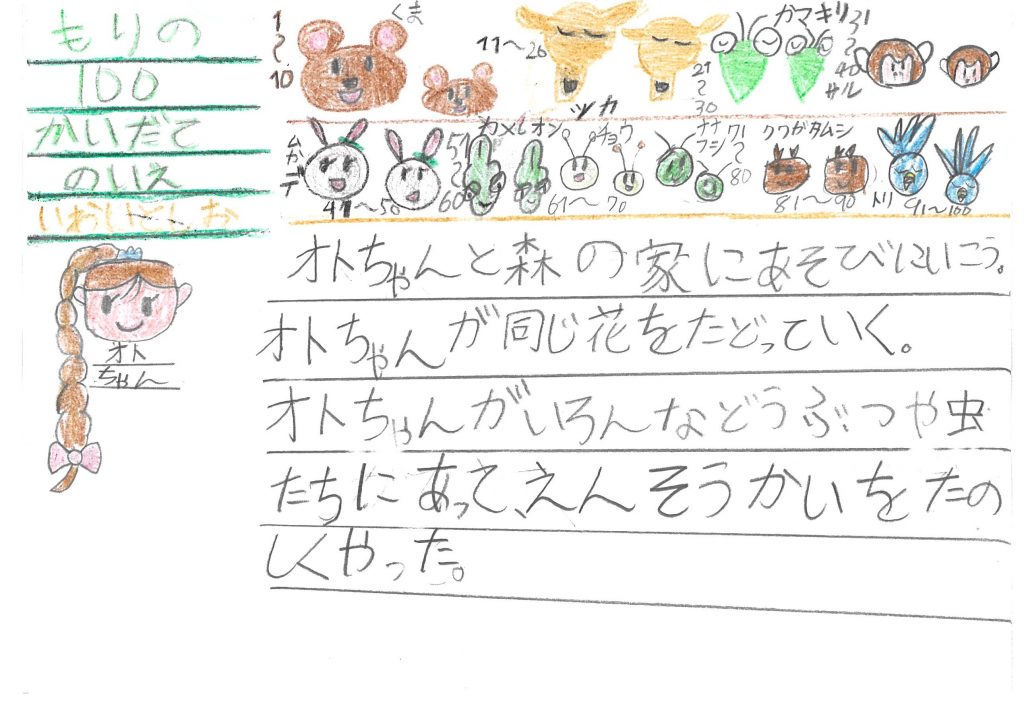 もりの
100
かいだて
のいえ
いわいとしお
1〜10
くま
11〜20
シカ
カマキリ
21〜30
31〜40
サル
ムカデ
41〜50
カメレオン
51〜60
チョウ
61〜70
ナナフシ
71〜80
クワガタムシ
81〜90
トリ
91〜100
オトちゃん
オトちゃんと森の家にあそびにいこう。
オトちゃんが同じ花をたどっていく。
オトちゃんがいろんなどうぶつや虫
たちにあって、えんそうかいをたの
しくやった。